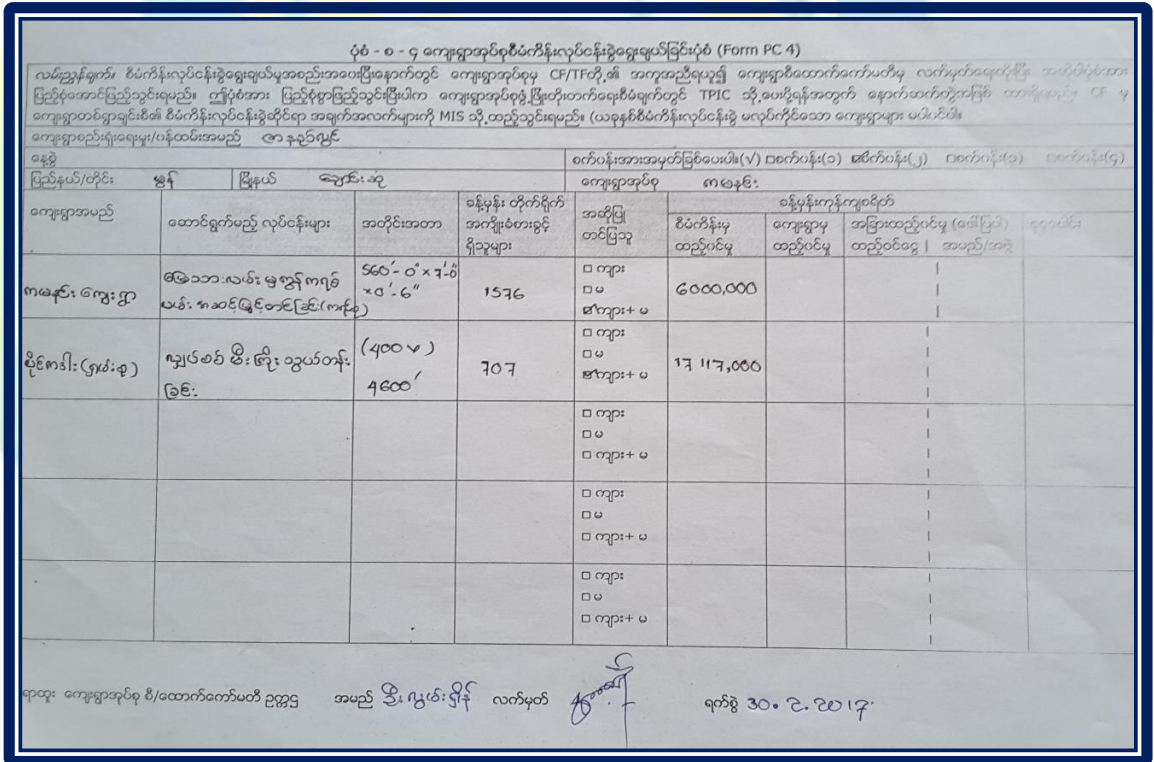 ပုံစံ - စ - ၄ ကျေးရွာအုပ်စုစီမံကိန်းလုပ်ငန်းခွဲရွေးချယ်ခြင်းပုံစံ (Form PC 4)
လမ်းညွှန်ချက်။ စီမံကိန်းလုပ်ငန်းခွဲရွေးချယ်မှုအစည်းအဝေးပြီးနောက်တွင် ကျေးရွာအုပ်စုမှ CF/TFတို့၏ အကူအညီရယူ၍ ကျေးရွာစီထောက်ကော်မတီမှ လက်မှတ်ရေးထိုးပြီး
ပြည့်စုံအောင်ဖြည့်သွင်းရမည်။ ဤပုံစံအား ပြည့်စုံစွာဖြည့်သွင်းပြီးပါက ကျေးရွာအုပ်စုဖွံ့ဖြိုးတိုးတက်ရေးစီမံချက်တွင် TPIC သို့ပေးပို့ရန်အတွက် နောက်ဆက်တွဲအဖြစ် ထားရှိရမည်။ CF မှ
ကျေးရွာတစ်ရွာချင်းစီ၏ စီမံကိန်းလုပ်ငန်းခွဲဆိုင်ရာ အချက်အလက်များကို MIS သို့ထည့်သွင်းရမည်။ (ယခုနှစ်စီမံကိန်းလုပ်ငန်းခွဲ မလုပ်ကိုင်သော ကျေးရွာများ မပါဝင်ပါ။
ကျေးရွာစည်းရုံးရေးမှူး/ဝန်ထမ်းအမည်
နေ့စွဲ စက်ဝန်းအားအမှတ်ခြစ်ပေးပါ။(√) □စက်ဝန်း(၁) ☑စက်ဝန်း(၂) □စက်ဝန်း(၃) □စက်ဝန်း(၄)
ပြည်နယ်/တိုင်း မွန် မြို့နယ် ချောင်းဆုံ ကျေးရွာအုပ်စု ကမနင်း
ကျေးရွာအမည် ဆောင်ရွက်မည့် လုပ်ငန်းများ အတိုင်းအတာ ခန့်မှန်း တိုက်ရိုက် အကျိုးခံစားခွင့် ရှိသူများ အဆိုပြု တင်ပြသူ ခန့်မှန်းကုန်ကျစရိတ်
စီမံကိန်းမှ ထည့်ဝင်မှု ကျေးရွာမှ ထည့်ဝင်မှု အခြားထည့်ဝင်မှု (ဖော်ပြပါ) ထည့်ဝင်ငွေ | အမည်/အဖွဲ့
ကမနင်း ကျေးရွာ မြေသားလမ်းမှ ကွန်ကရစ် လမ်း အဆင့်မြှင့်တင်ခြင်း 560'-0" x 7'-0" x 0'-6" 1576 □ ကျား □ မ ☑ ကျား+ မ 6000,000
လျှပ်စစ် မီးကြိုး သွယ်တန်း ခြင်း (400 v) 4600' 707 □ ကျား □ မ ☑ ကျား+ မ 17 117,000
□ ကျား
□ မ
□ ကျား+ မ
□ ကျား
□ မ
□ ကျား+ မ
□ ကျား
□ မ
□ ကျား+ မ
ရာထူး ကျေးရွာအုပ်စု စီ/ထောက်ကော်မတီ ဥက္ကဋ္ဌ အမည် ဦးလွမ်းရှိန် လက်မှတ် ရက်စွဲ 30. 2. 2017.